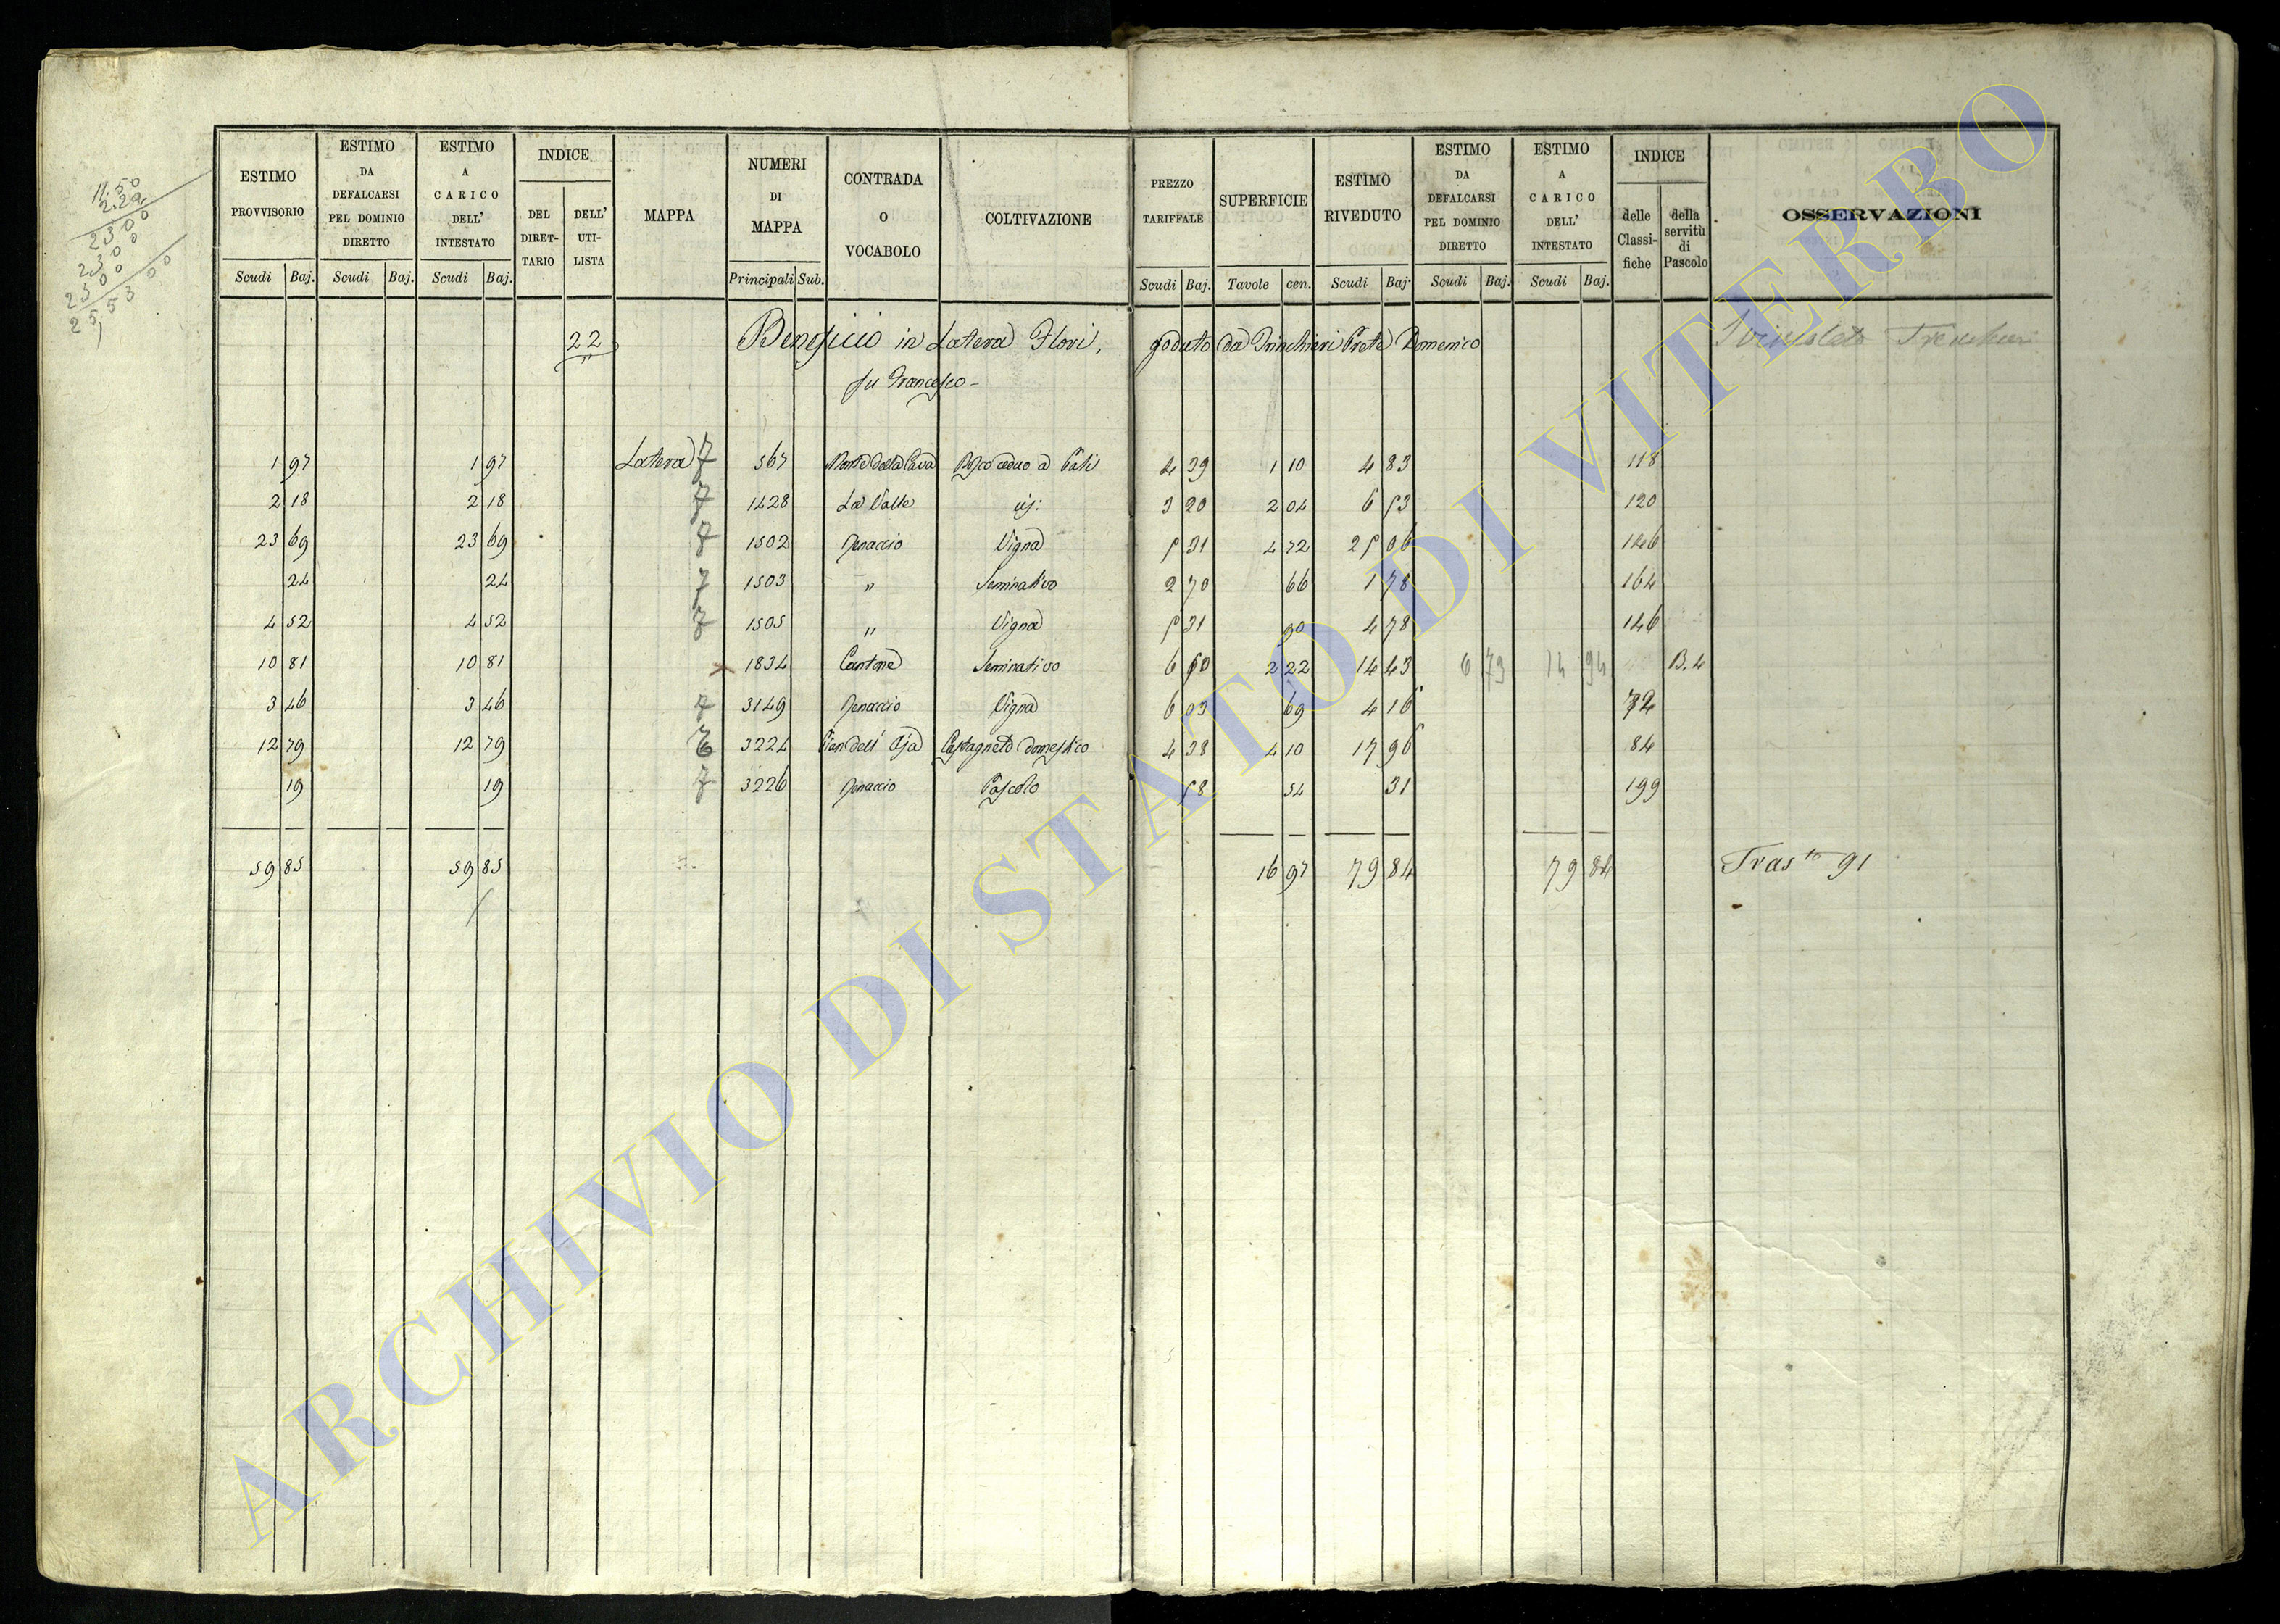 11.50
2.29
2300
2300
2300
25,5300
ESTIMO PROVVISORIO | ESTIMO DA DEFALCARSI PEL DOMINIO DIRETTO | ESTIMO A CARICO DELL' INTESTATO | INDICE DEL DIRET-TARIO | DELL' UTI-LISTA | MAPPA | NUMERI DI MAPPA | CONTRADA O VOCABOLO | COLTIVAZIONE | PREZZO TARIFFALE | SUPERFICIE | ESTIMO RIVEDUTO | ESTIMO DA DEFALCARSI PEL DOMINIO DIRETTO | ESTIMO A CARICO DELL' INTESTATO | INDICE delle Classi-fiche | della servitù di Pascolo | OSSERVAZIONI
Scudi | Baj. | Scudi | Baj. | Scudi | Baj. | Principali | Sub. | Scudi | Baj. | Tavole | cen. | Scudi | Baj. | Scudi | Baj. | Scudi | Baj.
22 Beneficio in Latera Flori, goduto da Trinchieri Prete Domenico
fu Francesco -
1 97 | 1 97 | Latera 7 | 567 | Monte della Cava | Bosco ceduo a Pali | 4 39 | 1 10 | 4 83 | 118
2 18 | 2 18 | 7 | 1428 | La Valle | id: | 3 20 | 2 04 | 6 53 | 120
23 69 | 23 69 | 7 | 1502 | Penaccio | Vigna | 5 31 | 4 72 | 25 06 | 146
24 | 24 | 7 | 1503 | " | Seminativo | 2 70 | 66 | 1 78 | 164
4 52 | 4 52 | 7 | 1505 | " | Vigna | 5 31 | 90 | 4 78 | 146
10 81 | 10 81 | × | 1834 | Cantone | Seminativo | 6 50 | 2 22 | 14 43 | 6 73 | 14 94 | B. 4
3 46 | 3 46 | 7 | 3149 | Penaccio | Vigna | 6 03 | 69 | 4 16 | 72
12 79 | 12 79 | 3224 | Pian dell' Aja | Castagneto domestico | 4 38 | 4 10 | 17 96 | 84
19 | 19 | 7 | 3226 | Penaccio | Pascolo | 58 | 54 | 31 | 199
59 85 | 59 85 | 16 97 | 79 84 | 79 84 | Tras to 91
ARCHIVIO DI STATO DI VITERBO